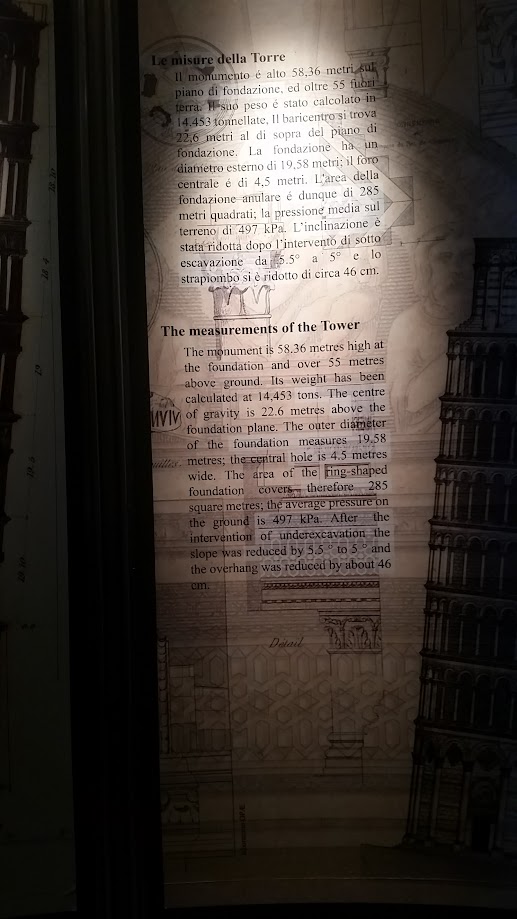 Le misure della Torre
Il monumento é alto 58,36 metri sul
piano di fondazione, ed oltre 55 fuori
terra. Il suo peso é stato calcolato in
14.453 tonnellate, Il baricentro si trova
22,6 metri al di sopra del piano di
fondazione. La fondazione ha un
diametro esterno di 19,58 metri; il foro
centrale é di 4,5 metri. L'area della
fondazione anulare é dunque di 285
metri quadrati; la pressione media sul
terreno di 497 kPa. L'inclinazione è
stata ridotta dopo l'intervento di sotto
escavazione da 5.5° a 5° e lo
strapiombo si è ridotto di circa 46 cm.
The measurements of the Tower
The monument is 58.36 metres high at
the foundation and over 55 metres
above ground. Its weight has been
calculated at 14,453 tons. The centre
of gravity is 22.6 metres above the
foundation plane. The outer diameter
of the foundation measures 19.58
metres; the central hole is 4.5 metres
wide. The area of the ring-shaped
foundation covers therefore 285
square metres; the average pressure on
the ground is 497 kPa. After the
intervention of underexcavation the
slope was reduced by 5.5 ° to 5 ° and
the overhang was reduced by about 46
cm.
Détail